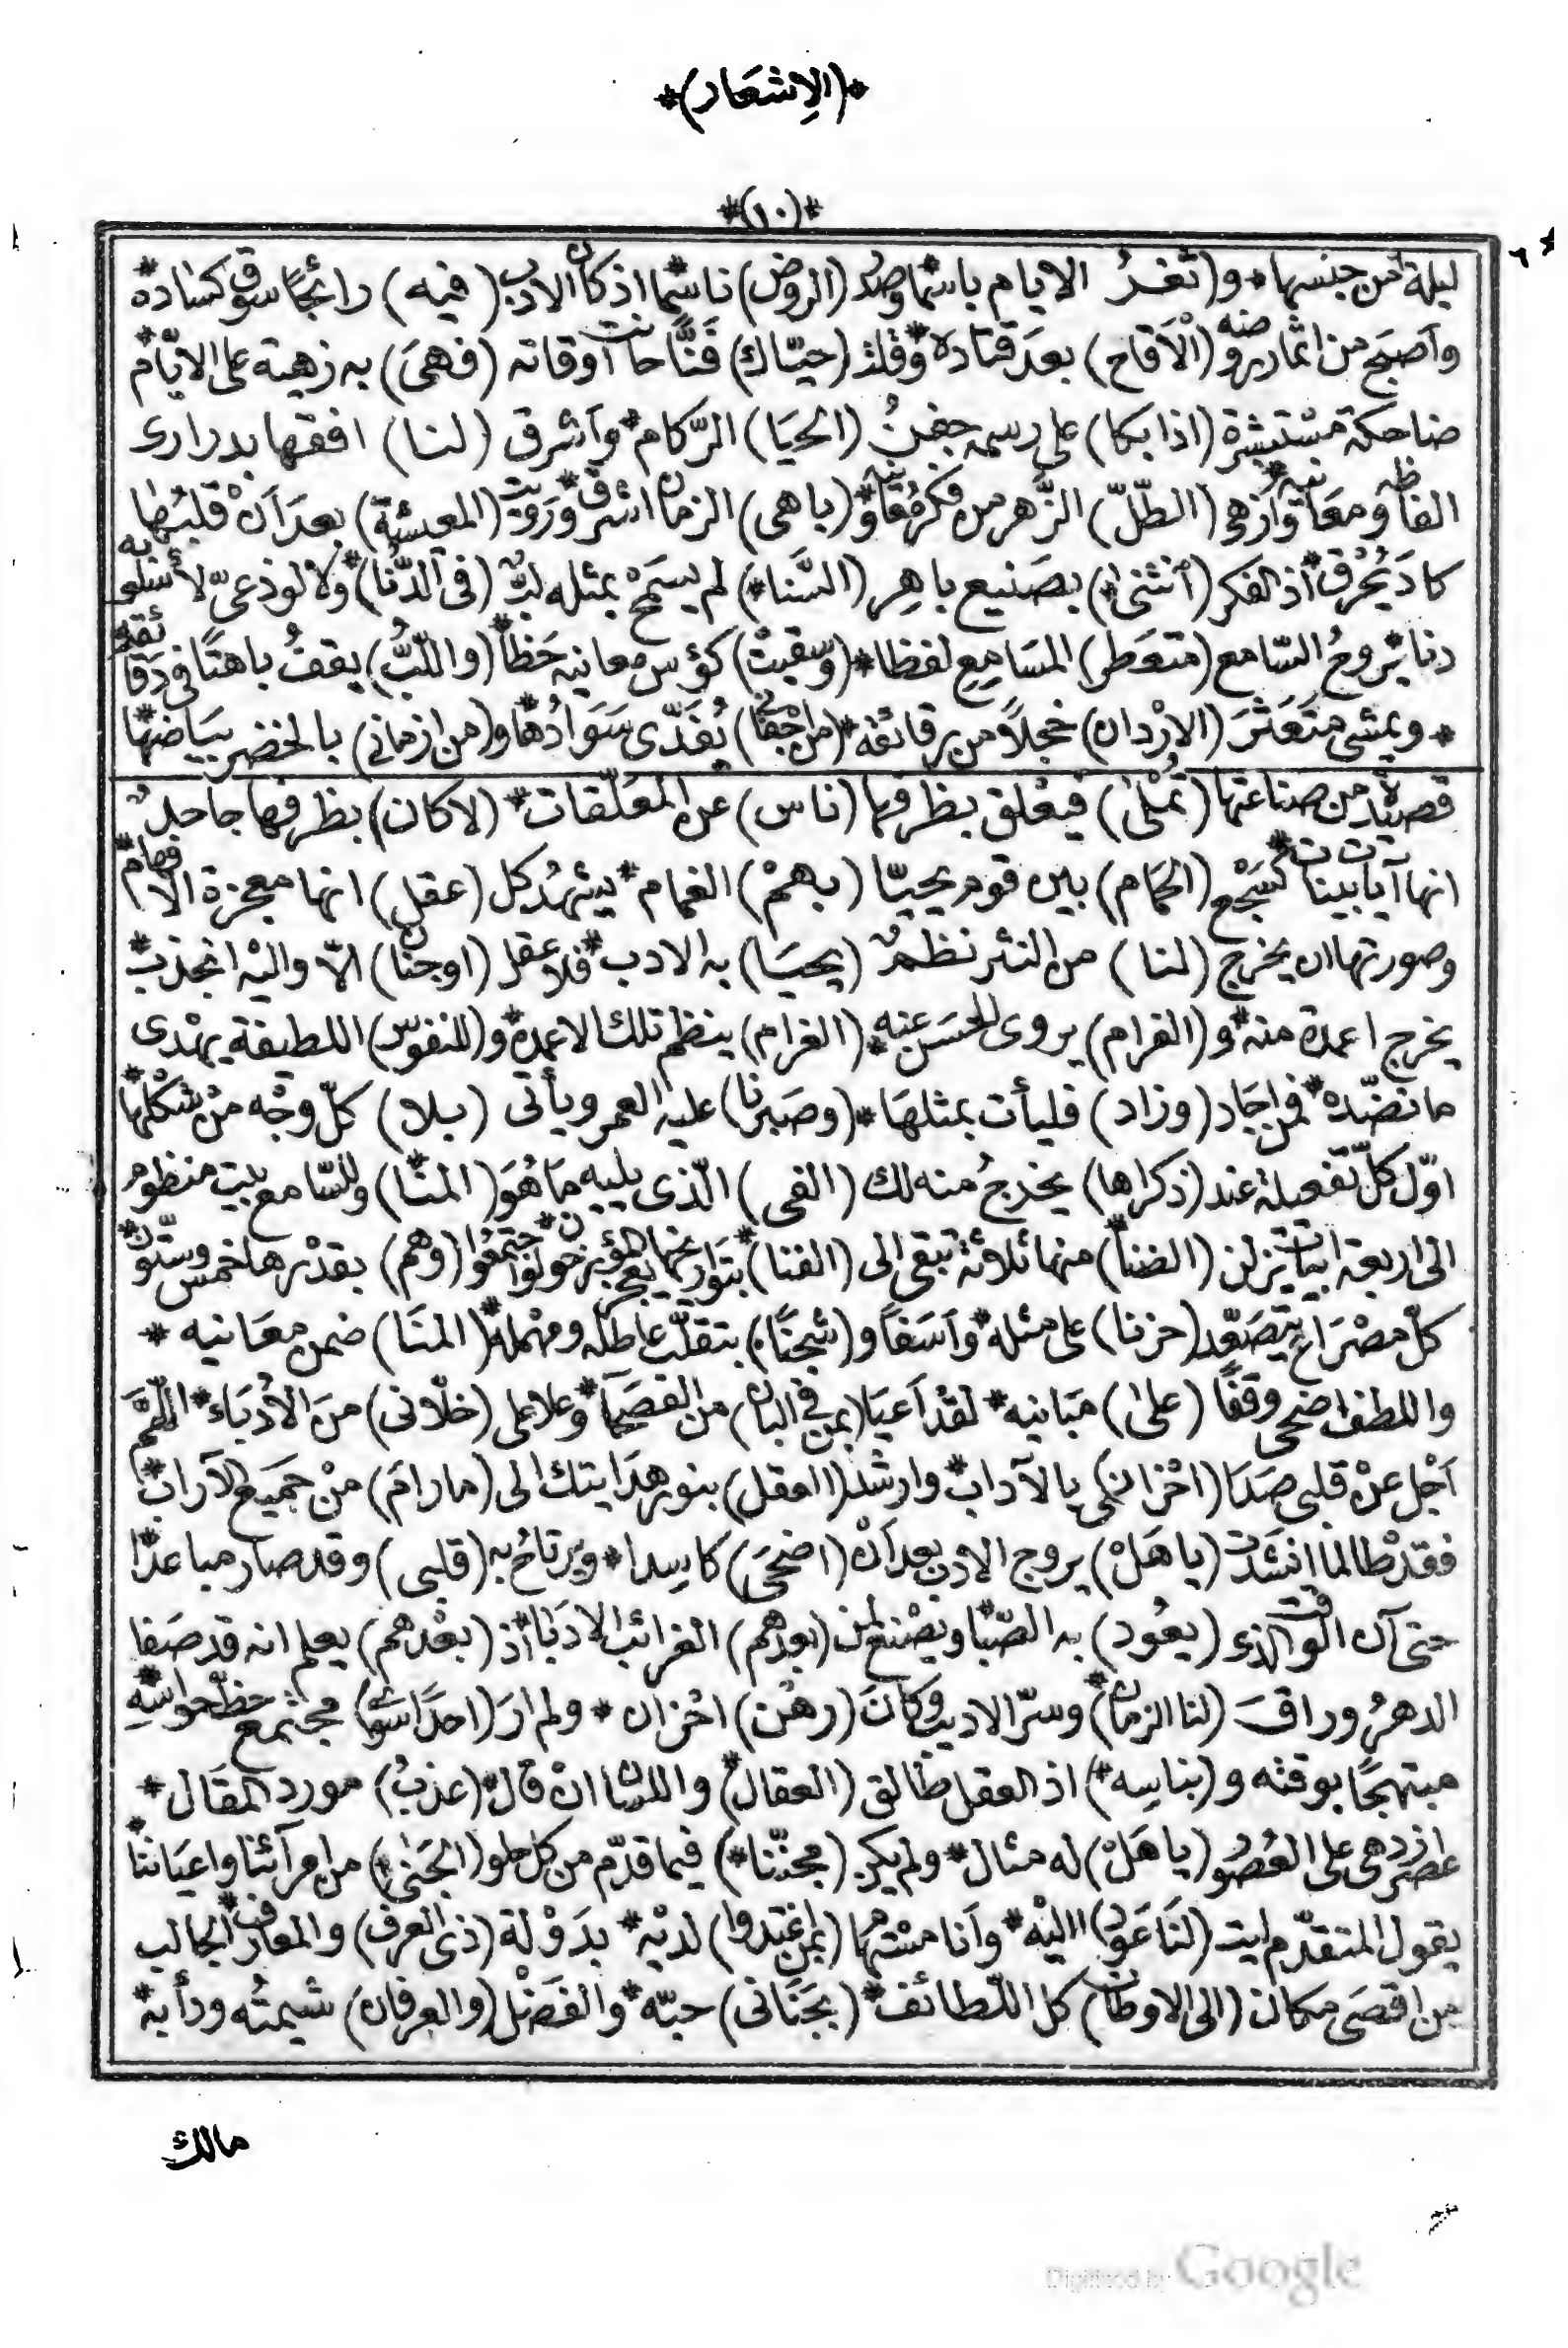 *(الإشعار)*
*(١٠)*
ليلة من جنسها * و(ثغر الايام باسما وصد (الروض) ناسما اذ كان الادب (فيه) رائجا سوق كساده *
وأصبح من اثمار روضه (الأقاح) بعد قتاده * وقلت (حيّاك) فنّا حانت أوقاته (فهى) به زهية على الايّام *
ضاحكة مستبشرة (اذا بكا) على رسمه جفن (الحيا) الرّكام * وأشرق (لنا) افقها بدرارى
الفاظه ومعانيه * وأزهى (الطّلّ) الزّهر من فكر مُعانيه * و(باهى) الزمان اشرق * ورويت (المعيشة) بعد أن قلبها
كاد يُحرق * أذ الفكر (أنثنى) بصنيع باهر (السّنا *) لم يسمح بمثله لبّ (في الدُّنا) * ولا لوذعىّ لأسلوبه
دنا * يروح السّامع (متعطر) المسامع لفظا * (وسقيت) كؤس معانيه حظا * (واللّبّ) يقف باهتا في دقائقه
* ويمشى متعثر (الاردان) خجلا من برقائقه * (من أجفان) يُفدّى سوادها و(من ازمانى) بالخضر بياضها *
قصيدة من صناعتها (تُملى) فيعلق بظرفها (ناس) عن المعلّقات * (لا كان) بظرفها جاحد
انها آيات بينات * كسجع (الحمام) بين قوم يحيّا (بهم) الغمام * يشهد كل (عقل) انها معجزة الافهام *
وصورتها ان يخرج (لنا) من النثر نظم (يحيا) به الادب * فلا عقل (اوجنان) الّا واليه انجذب *
يخرج اعمدة منه * و(الغرام) يروى للحسن عنه * (الغرام) ينظم تلك الاعمدة * و(للنفوس) اللطيفة يهدى
ما نضّده * فمن اجاد (وزاد) فليأت بمثلها * (وصبرنا) عليه العمر ويأتى (بلا) كلّ وجه من شكلها *
اوّل كلّ تفعيلة عند (ذكراها) يخرج منه لك (الفى) الّذى يليه ما هو (المنا) وللسّامع بيت منظوم
الى اربعة ابيات ينزلن (الضنا) * منها ثلاثة تبقى الى (الفنا) * بتواريخها يعجز المؤرخون * ولو اجتمعوا (وهم) بقدرها خمس وستّون *
كلّ مصراع يتصعّد (حزنا) على مثله * وأسفا و(شجنا) بتقلّب عاطله ومهمله * (المنا) ضمن معانيه *
واللطف اضحى وقفا (على) مبانيه * لقد أعيا (بمن في البان) من الفصحاء * وعلا على (خلّانى) من الأدباء * اللّهمّ
أجل عن قلبى صدا (احزانى) بالآداب * وارشد (العقل) بنور هدايتك الى (ما رام) من جميع الآراب *
فقد طالما انشدت (يا هل) يروج الادب بعد أن (اضحى) كاسدا * ويرتاح به (قلبى) وقد صار مباعدا
حتى آن الوقت الذى (يعود) به الصّبا * ويصنع لمن (بعدهم) الغرائب الادبا * أذ (بعدهم) يعلم انه قد صفا
الدهر وراق (لنا الزمان) * وسرّ الاديب وكان (رهن) احزان * ولم ار (احدا سوى) مجتمع حظ حواسّه *
مبتهجا بوقته و(بناسه *) اذ العقل طالق (العقال) * واللسان ان قال * (عذب) مورد المقال *
عصر ازدهى على العصور (يا هل) له مثال * ولم يكن (مجنّنا *) فيما قدّم من كل حلو (الجنى *) من امرآئنا واعياننا *
يقول المتقدّم ليت (لنا عود) اليه * وأنا مستهام (بمن اغتدوا) لديه * بدولة (ذى العرف) والمعارف * الجالب
من اقصى مكان (الى الاوطان) كل اللّطائف * (بجنانى) حبّه * والفضل (والعرفان) شيمته ودأبه *
مالك
Digitized by Google